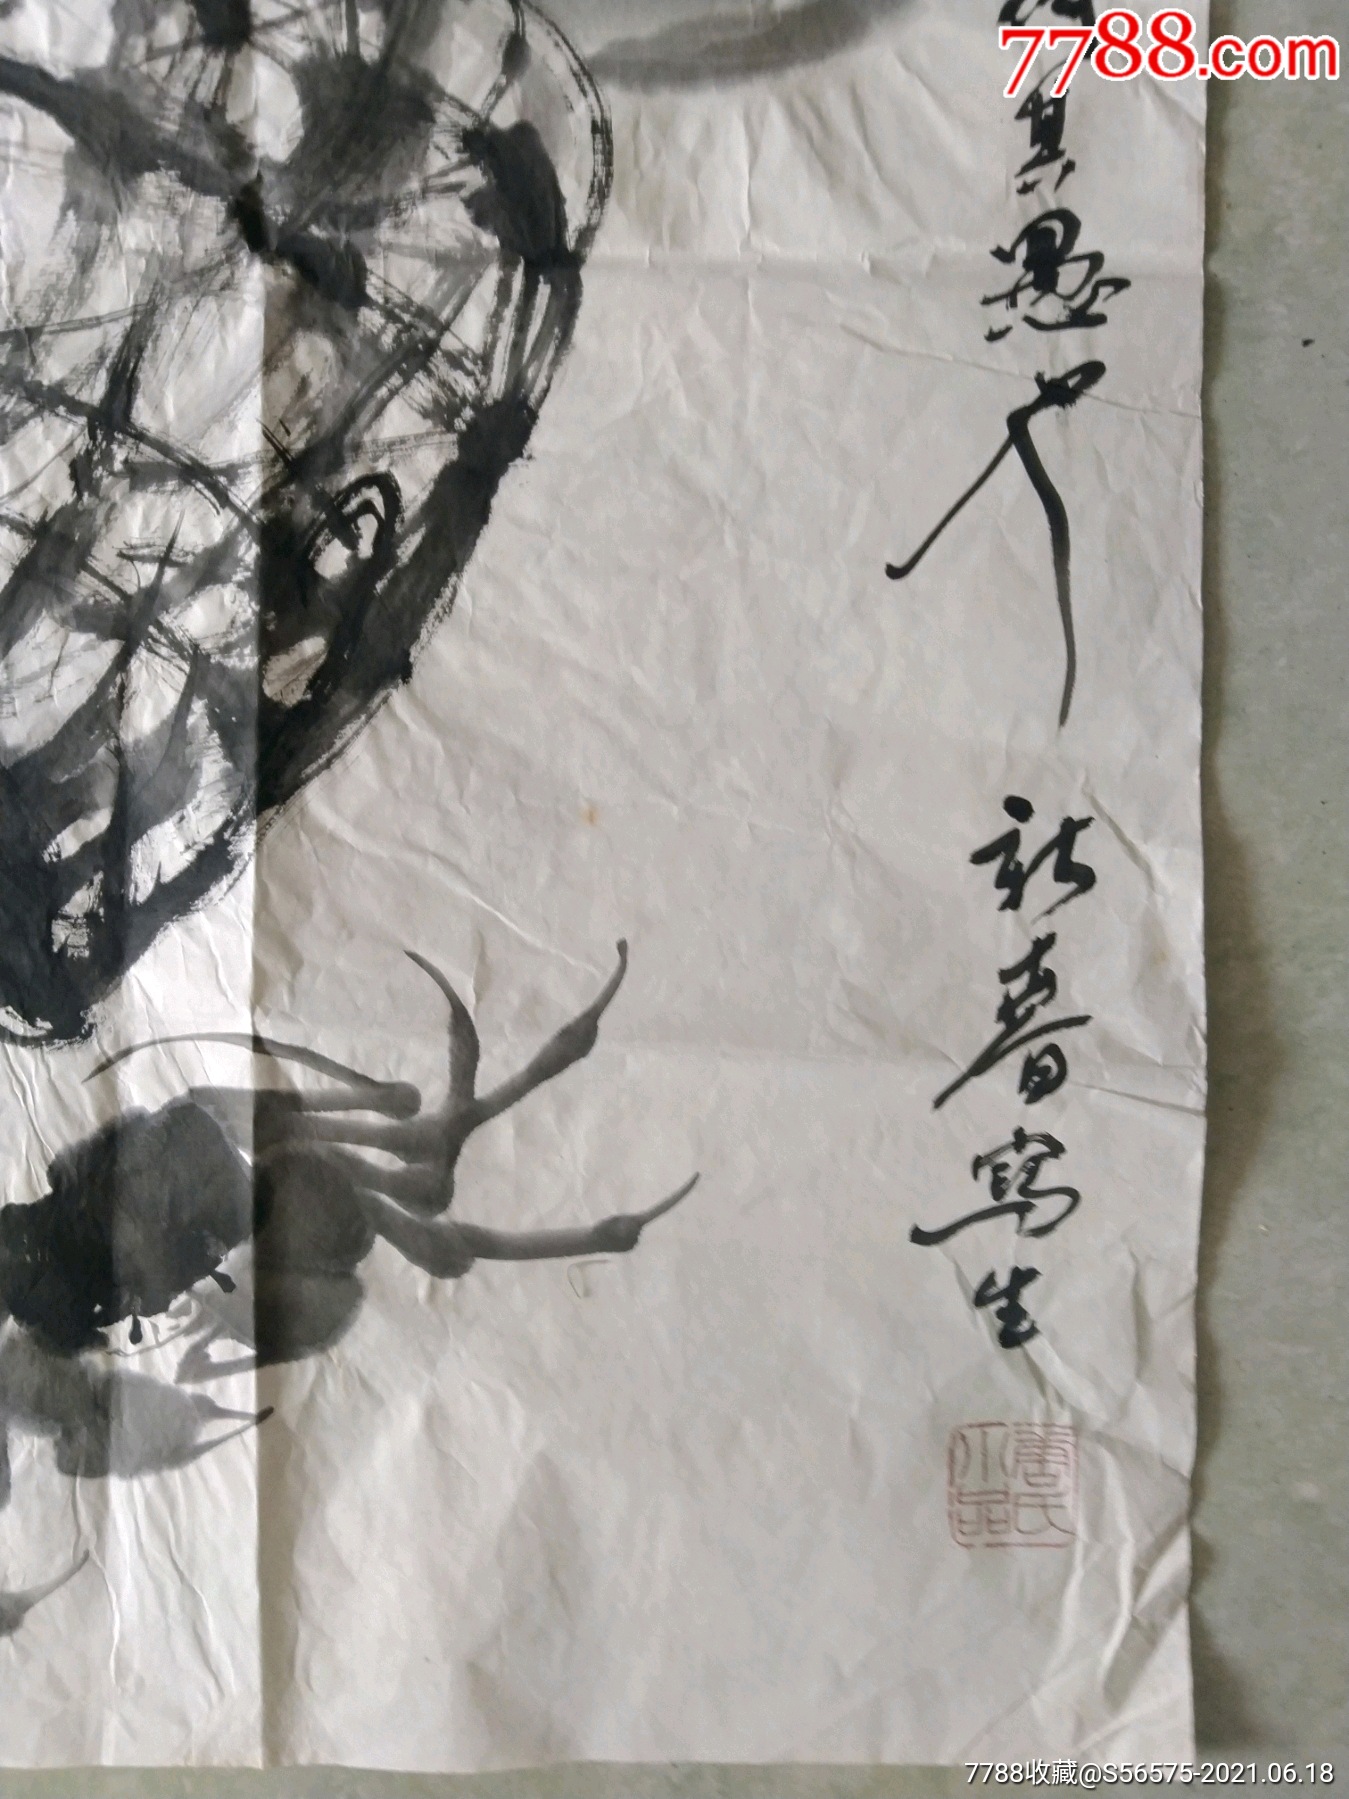 7788.com
其愚
新春寫生
7788收藏@S56575-2021.06.18